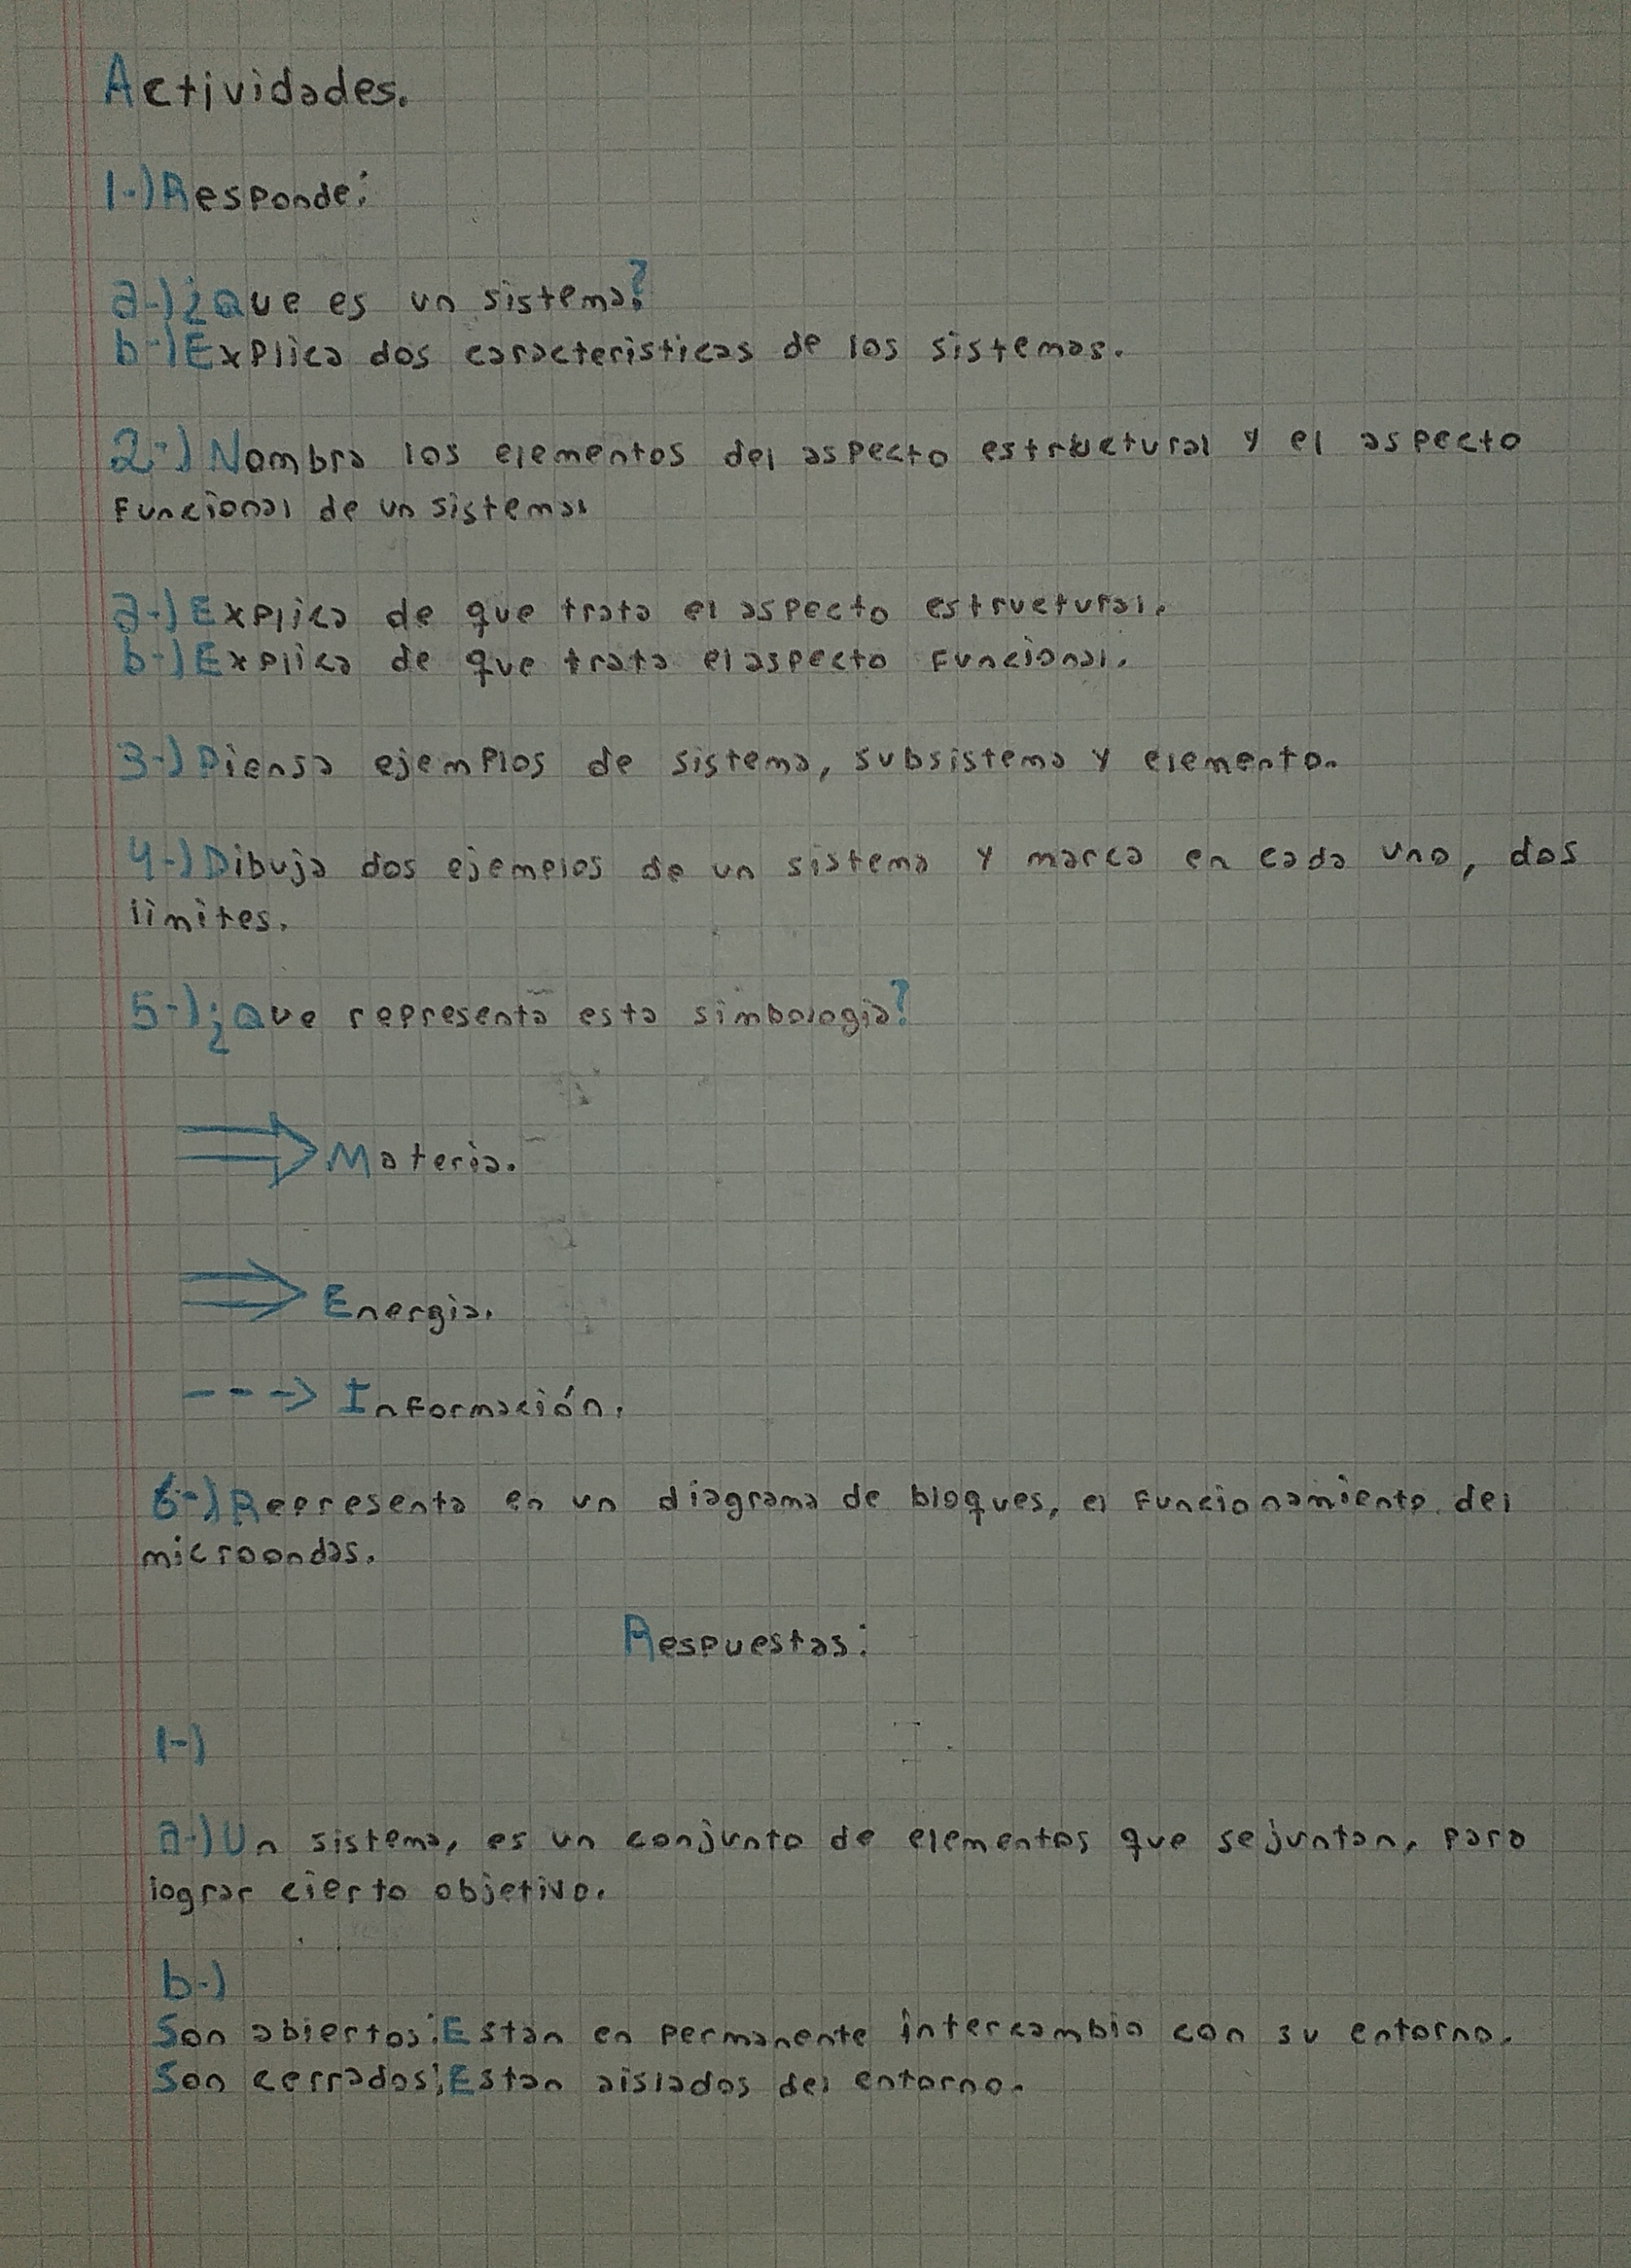 Actividades.
1-) Responde:
a-) ¿Que es un sistema?
b-) Explica dos caracteristicas de los sistemas.
2-) Nombra los elementos del aspecto estructural y el aspecto
Funcional de un sistema.
a-) Explica de que trata el aspecto estructural.
b-) Explica de que trata el aspecto Funcional.
3-) Piensa ejemplos de sistema, subsistema y elemento.
4-) Dibuja dos ejemplos de un sistema y marca en cada uno, dos
limites.
5-) ¿Que representa esta simbologia?
Materia.
Energia.
Información.
6-) Representa en un diagrama de bloques, el Funcionamiento del
microondas.
Respuestas:
1-)
a-) Un sistema, es un conjunto de elementos que se juntan, para
lograr cierto objetivo.
b-)
Son abiertos: Estan en permanente intercambio con su entorno.
Son cerrados: Estan aislados del entorno.